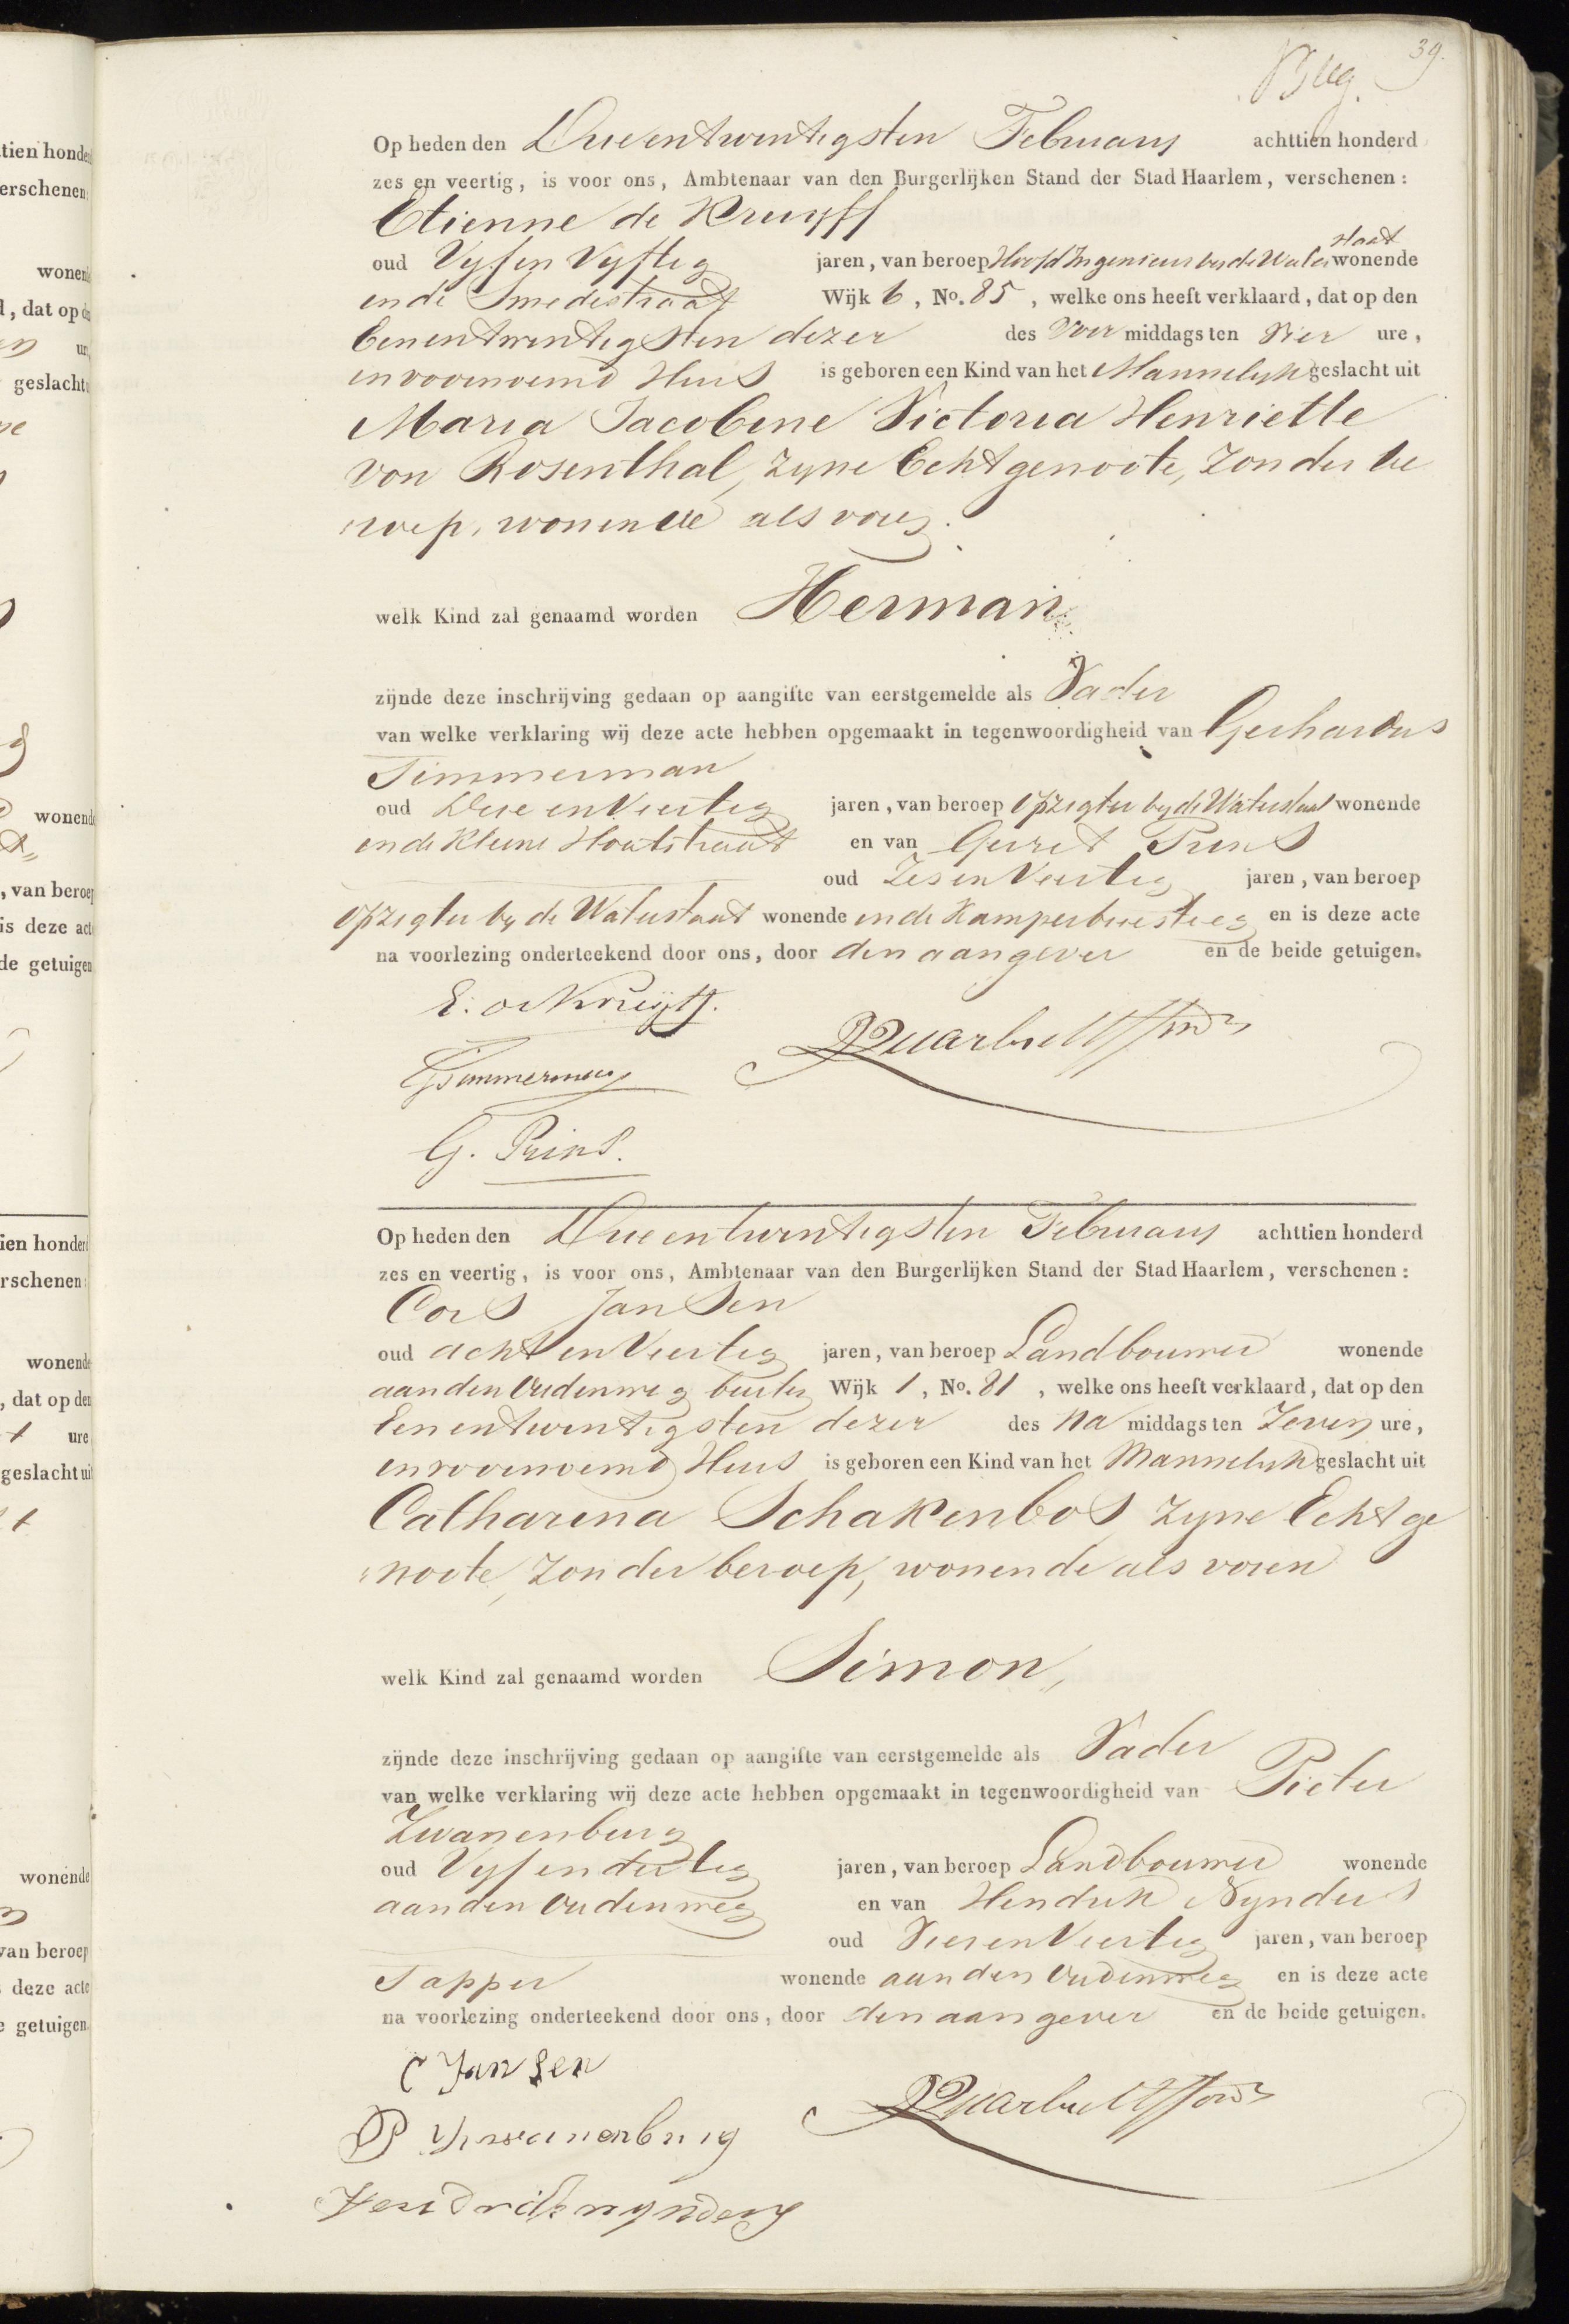 39.
Op heden den Drieentwintigsten Februarij achttien honderd
zes en veertig, is voor ons, Ambtenaar van den Burgerlijken Stand der Stad Haarlem, verschenen:
Etienne de Kruyff
staat
oud Vyfen Vyftig jaren, van beroep Hoofd Ingenieur by de Water wonende
in de Smedestraat Wijk 6, No. 85, welke ons heeft verklaard, dat op den
Eenentwintigsten dezer des Voor middags ten Vier ure,
in voornoemd Huis is geboren een Kind van het Mannelyk geslacht uit
Maria Jacobine Victoria Henriette
von Rosenthal, zyne Echtgenoote, zonder be
roep, wonende als voren.
welk Kind zal genaamd worden Herman
zijnde deze inschrijving gedaan op aangifte van eerstgemelde als Vader
van welke verklaring wij deze acte hebben opgemaakt in tegenwoordigheid van Gerhardus
Timmerman
oud Drie en Veertig jaren, van beroep Opzigter by de Waterstaat wonende
in de Kleine Houtstraat en van Gerret Prins
oud Zes en Veertig jaren, van beroep
Opzigter by de Waterstaat wonende in de Kamperbuesteeg en is deze acte
na voorlezing onderteekend door ons, door den aangever en de beide getuigen.
E. de Kruijff.
GTimmerman
G. Prins.
Op heden den Drieentwintigsten Februarij achttien honderd
zes en veertig, is voor ons, Ambtenaar van den Burgerlijken Stand der Stad Haarlem, verschenen:
Cors Jansen
oud acht en Veertig jaren, van beroep Landbouwer wonende
aan den Oudenweg buiten Wijk 1, No. 81, welke ons heeft verklaard, dat op den
Eenentwintigsten dezer des Na middags ten Zeven ure,
in voornoemd Huis is geboren een Kind van het Mannelyk geslacht uit
Catharina Schakenbos zyne Echtge
noote, zonder beroep, wonende als voren
welk Kind zal genaamd worden Simon,
zijnde deze inschrijving gedaan op aangifte van eerstgemelde als Vader
van welke verklaring wij deze acte hebben opgemaakt in tegenwoordigheid van Pieter
Zwanenburg
oud Vyf en dertig jaren, van beroep Landbouwer wonende
aan den Oudenweg en van Hendrik Nynders
oud Vier en Veertig jaren, van beroep
Tapper wonende aan den Oudenweg en is deze acte
na voorlezing onderteekend door ons, door den aangever en de beide getuigen.
C Jansen
P Zwanenburg
Hendrik nynders